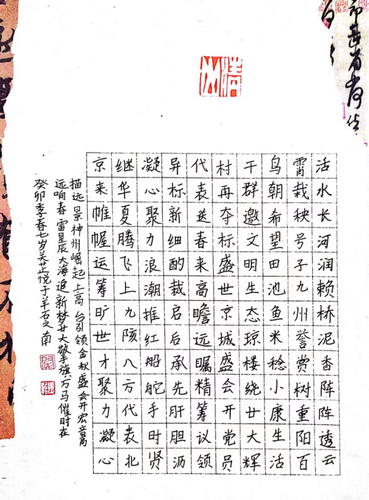 活水长河润赖桥泥香阵阵透云
霄栽秧号子九州誉赏树重阳百
鸟朝希望田池鱼米稔小康生活
干群邀文明生态琼楼绕廿大辉
村再夺标盛世京城盛会开党员
代表送春来高瞻远瞩精筹议领
异标新细酌裁启后承先肝胆沥
凝心聚力浪潮推红船舵手时贤
继华夏腾飞上九陔八方代表北
京来帷幄运筹旷世才聚力凝心
描远景神州崛起上高台引领金秋盛会开宏音万
远响春雷星辰大海追新梦廿大擎旗万马催时在
癸卯季春七岁关芷悦于羊石之南